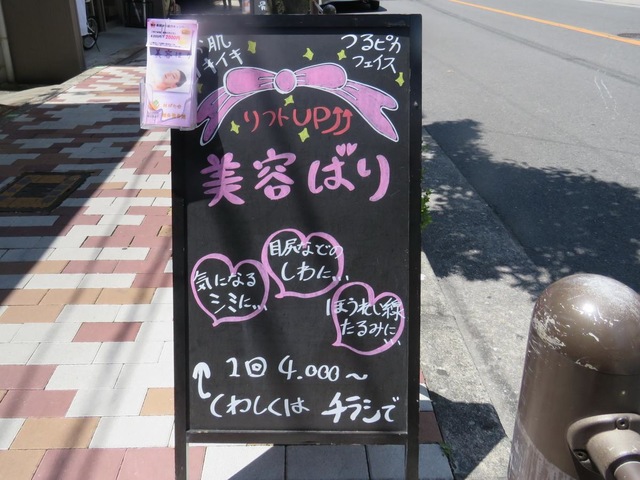 お肌
イキイキ
つるピカ
フェイス
リフトUP⇈
美容ばり
目尻などの
しわに...
気になる
シミに...
ほうれい線
たるみに...
1回 4.000〜
↑くわしくは チラシで